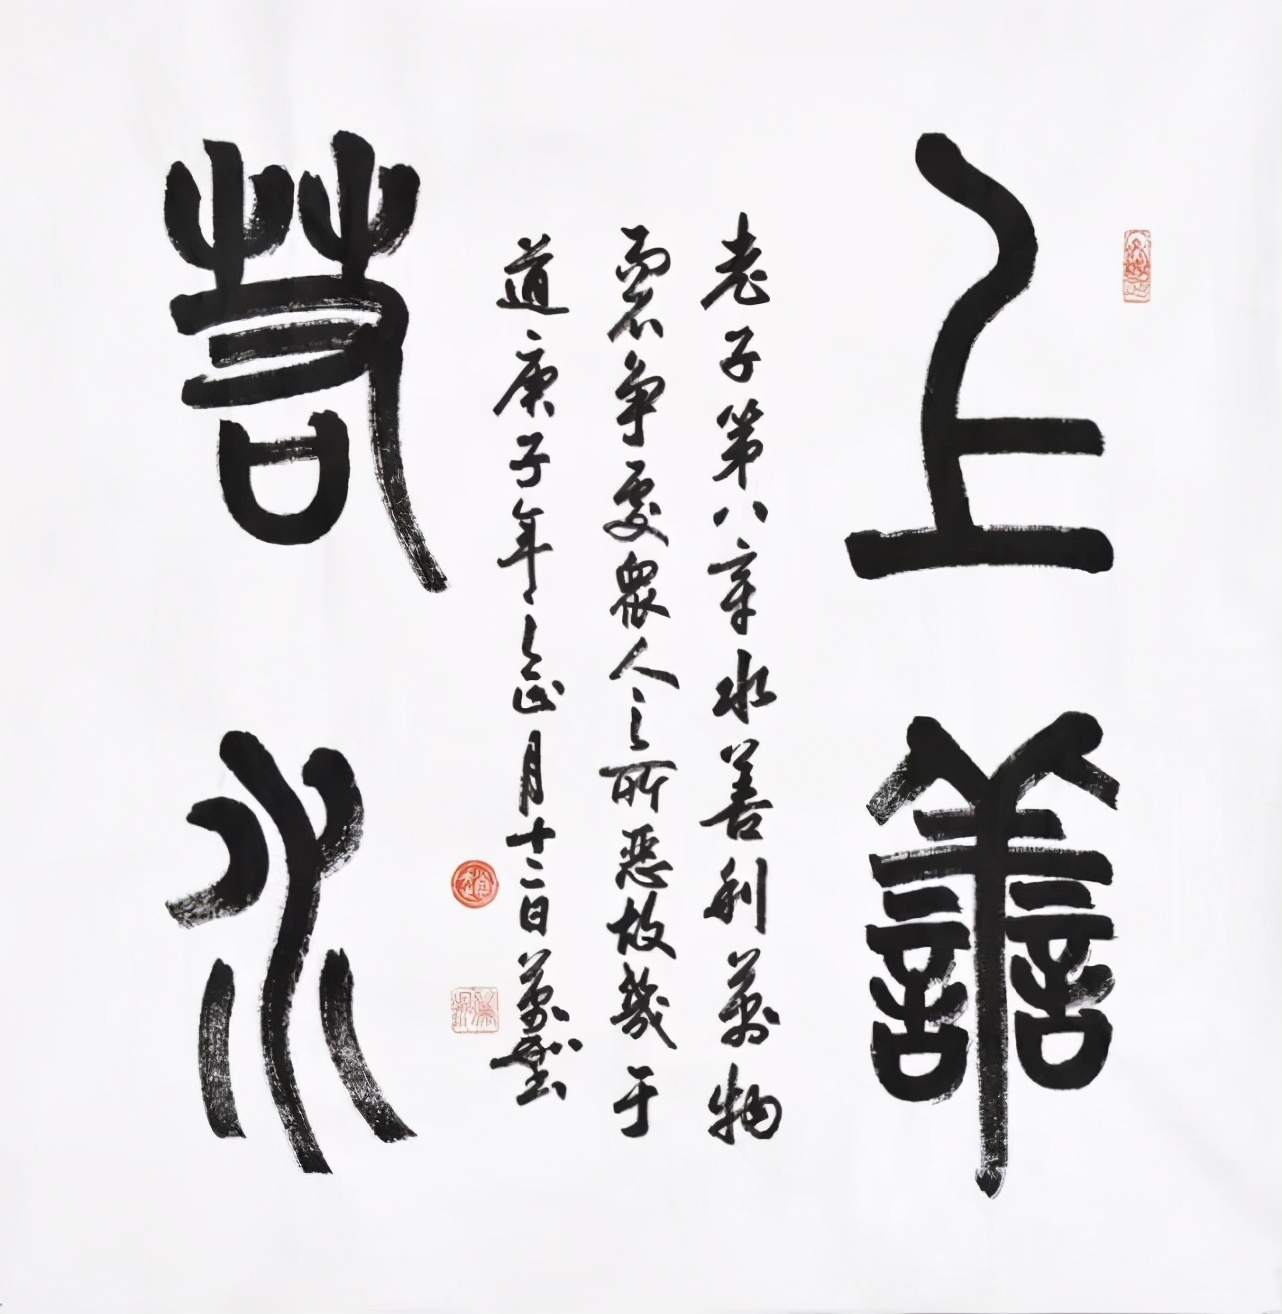 上善
若水
老子第八章水善利萬物
而不争處衆人之所惡故幾于
道庚子年之正月十二日萬